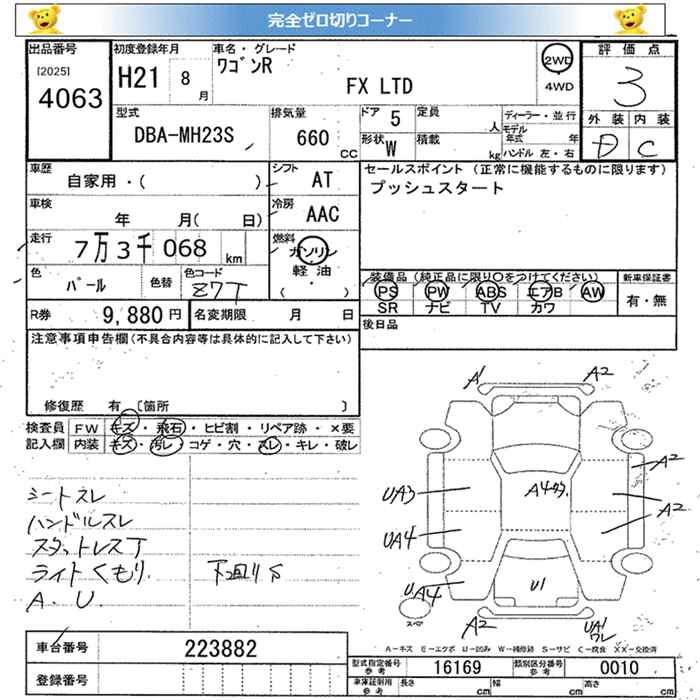 完全ゼロ切りコーナー
出品番号
[2025]
4063
初度登録年月
H21 8月
車名・グレード
ワゴンR
FX LTD
2WD
4WD
評価点
3
外装 内装
D C
型式
DBA-MH23S
排気量
660 CC
ドア 5
定員 人
形状 W
積載 kg
ディーラー・並行
モデル年式 年
ハンドル 左・右
車歴
自家用・( )
シフト
AT
セールスポイント(正常に機能するものに限ります)
プッシュスタート
車検
年 月( 日)
冷房
AAC
走行
7万3千068 km
燃料
ガソリン
軽油
( )
色
パール
色替
色コード
Z7T
装備品(純正品に限り○をつけてください)
PS PW ABS エアB AW
SR ナビ TV カワ
新車保証書
有・無
R券 9,880円
名変期限 月 日
後日品
注意事項申告欄(不具合内容等は具体的に記入して下さい)
修復歴 有 [箇所 ]
検査員記入欄
FW キズ・飛石・ヒビ割・リペア跡・×要
内装 キズ・汚レ・コゲ・穴・スレ・キレ・破レ
シートスレ
ハンドルスレ
スタットレスT
ライトくもり.
A.U.
下廻りS
A1 A2
A2
UA3 A4タ. A2
UA4
UA4 U1
スペア
A2 UA1
ワレ
A-キズ E-エクボ U-凹み W-補修跡 S-サビ C-腐食 XX-交換済
車台番号 223882
登録番号
型式指定番号 参考 16169
類別区分番号 参考 0010
車庫証明用 参考 長さ cm 幅 cm 高さ cm